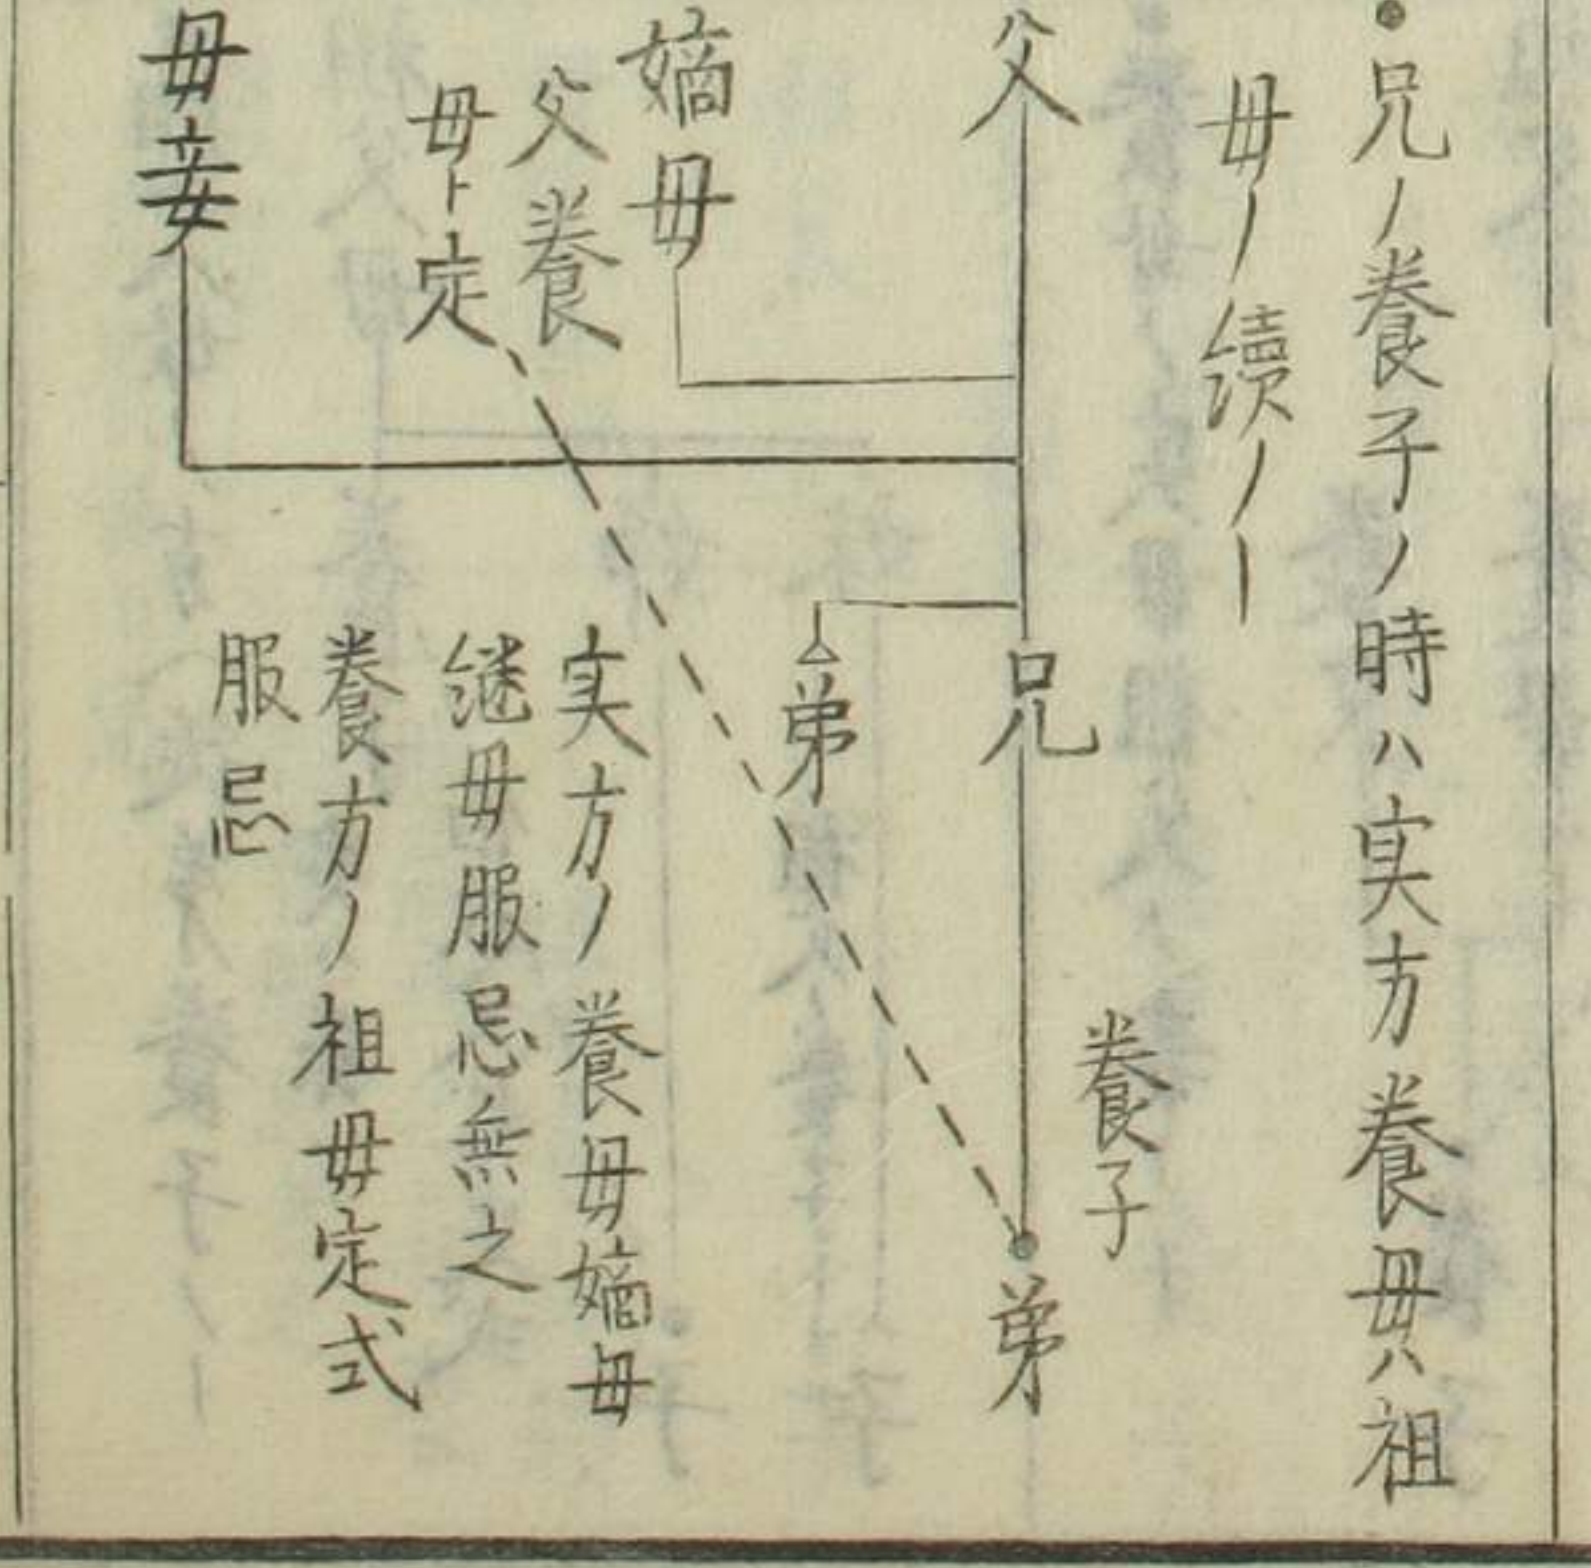 ●兄ノ養子ノ時ハ実方養母ハ祖
母ノ續ノー
父
嫡母
父養
母ト定
母妾
兄
弟
養子
弟
実方ノ養母嫡母
継母服忌無之
養方ノ祖母定式
服忌